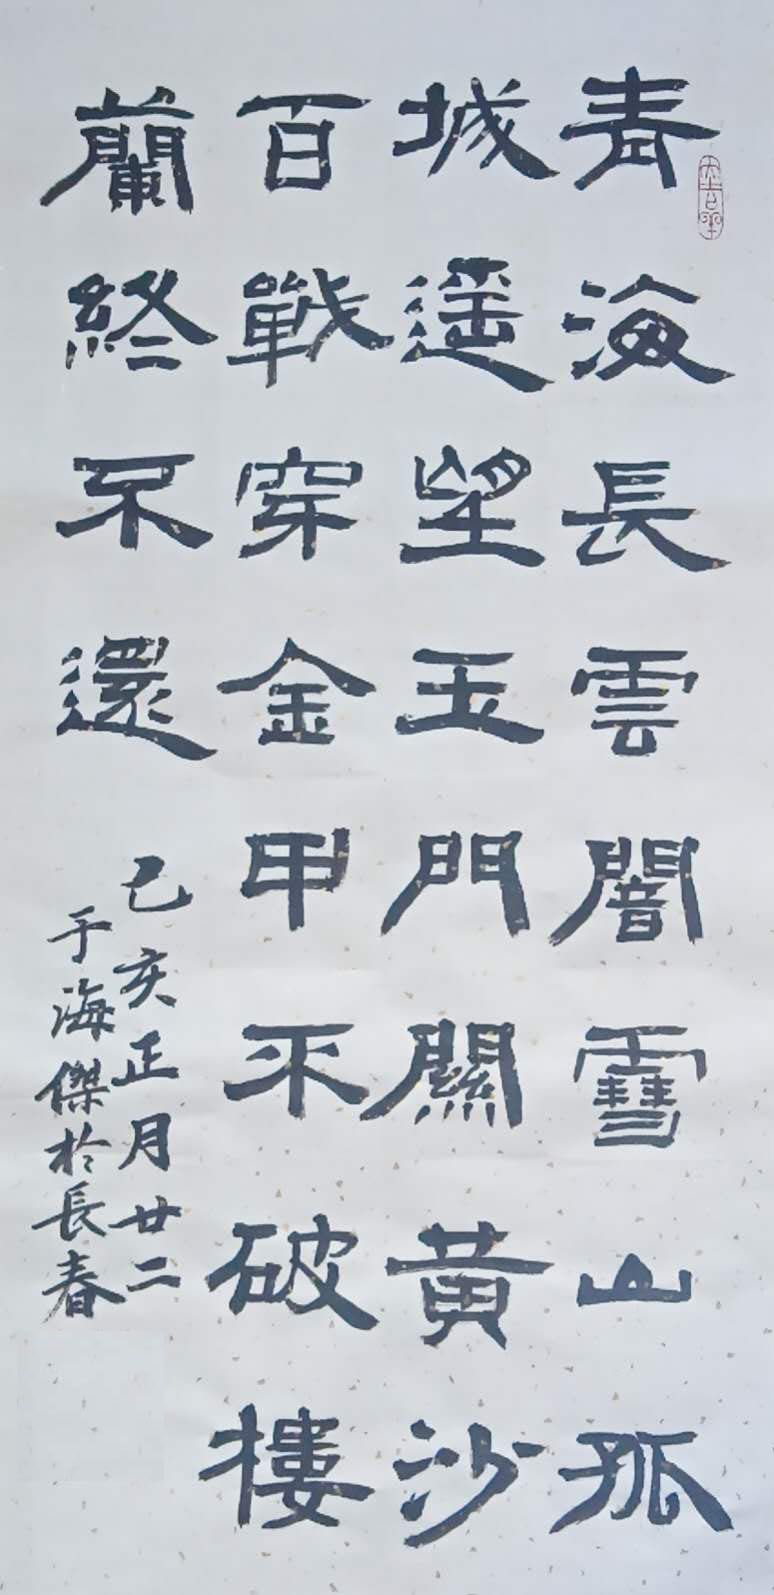 青海長雲闇雪山孤
城遥望玉門關黄沙
百戰穿金甲不破樓
蘭終不還
己亥正月廿二
于海傑於長春